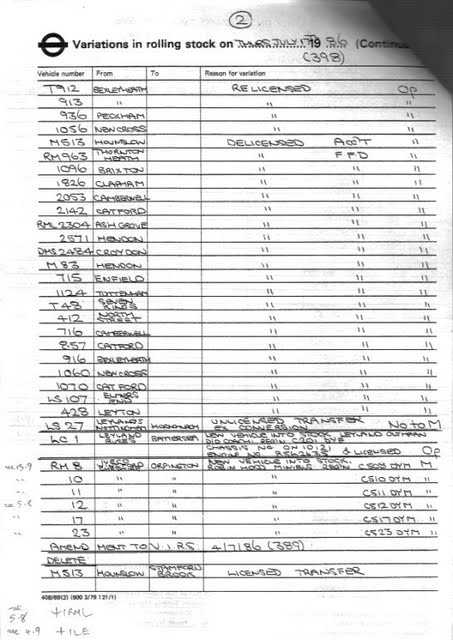 (2)
Variations in rolling stock on TUES JULY 1 19 86 (Continu
(398)
Vehicle number From To Reason for variation
T912 BEXLEYHEATH RELICENSED Op
913 " " "
936 PECKHAM " "
1056 NEW CROSS " "
M513 HOUNSLOW DELICENSED ACC'T "
RM963 THORNTON HEATH " F F D "
1096 BRIXTON " " "
1826 CLAPHAM " " "
2053 CAMBERWELL " " "
2142 CATFORD " " "
RML 2304 ASH GROVE " " "
2571 HENDON " " "
DMS 2484 CROYDON " " "
M 83 HENDON " " "
715 ENFIELD " " "
1124 TOTTENHAM " " "
T 48 SEVEN KINGS " " "
412 NORTH STREET " " "
716 CAMBERWELL " " "
857 CATFORD " " "
916 BEXLEYHEATH " " "
1060 NEW CROSS " " "
1070 CATFORD " " "
LS 107 ELMERS END " " "
428 LEYTON " " "
LS 27 LEYLANDS NOTTINGHAM UNLICENSED TRANSFER EX CONVERSION No to M
LC 1 BATTERSEA NEW VEHICLE INTO STOCK LEYLAND OLYMPIAN
COACH. REGN C201 DYE
CHASSIS NO ON 10131
ENGINE NO & LICENSED Op
rec 15.9 RM 8 IVECO ORPINGTON NEW VEHICLE INTO STOCK.
ROBIN HOOD MINIBUS REGN C508 DYM M
" 10 " " " C510 DYM "
" 11 " " " C511 DYM "
rec 5.8 12 " " " C512 DYM "
" 17 " " " C517 DYM "
" 23 " " " C523 DYM "
AMENDMENT TO V.I.R S 4/7/86 (389)
DELETE
M513 HOUNSLOW STAMFORD BROOK LICENSED TRANSFER
408/69(2) (800 3/79 121/1)
rec 5.8 +1RML
rec 4.9 +1LE